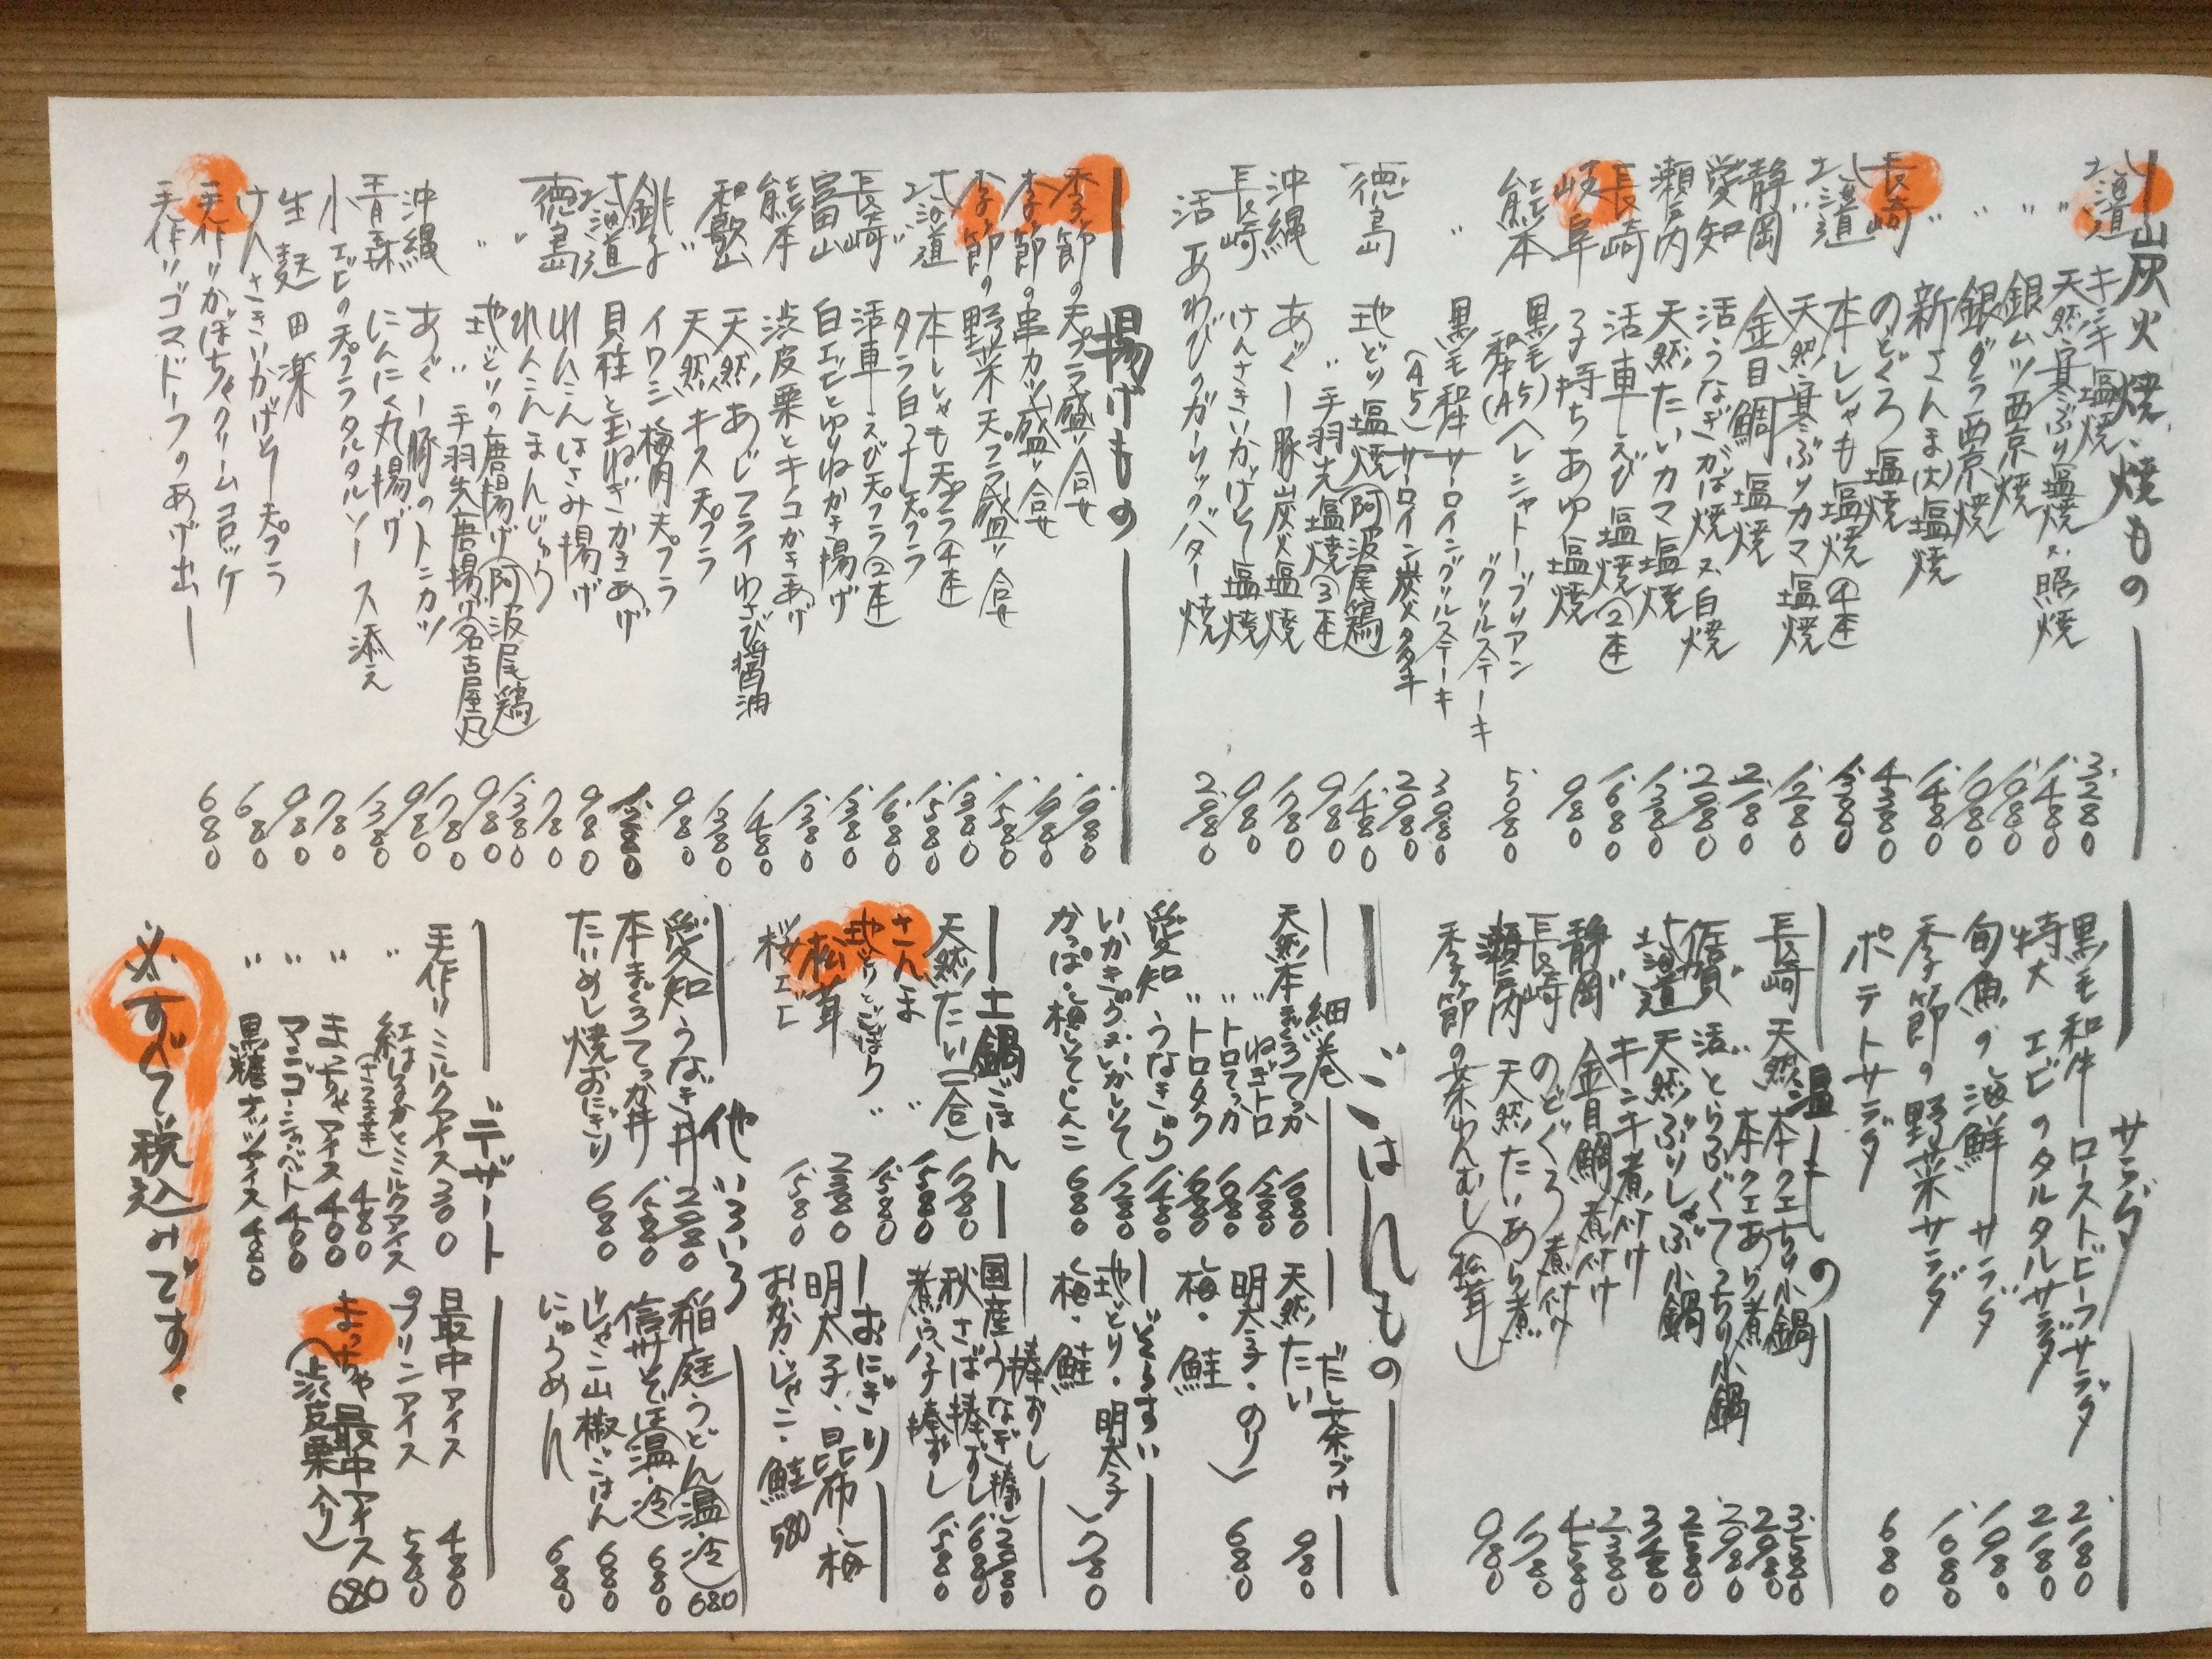 炭火焼、焼もの
北海道 キンキ塩焼 3.280
〃 天然寒ぶり塩焼又照焼 1.480
〃 銀ムツ西京焼 1.080
〃 銀ダラ西京焼 1.080
〃 新さんま(大)塩焼 1.480
長崎 のどぐろ塩焼 4.380
北海道 本ししゃも塩焼④本 1.380
〃 天然寒ぶりカマ塩焼 1.280
静岡 金目鯛塩焼 2.180
愛知 活うなぎかば焼又白焼 2.980
瀬戸内 天然たいカマ塩焼 1.380
長崎 活車えび塩焼②本 1.680
岐阜 子持ちあゆ塩焼 980
熊本 黒毛和牛(A5)ヘレシャトーブリアングリルステーキ 5.080
〃 黒毛和牛サーロイングリルステーキ 3.980
(A5)サーロイン炭火タタキ 2.980
徳島 地どり塩焼(阿波尾鶏) 1.480
〃 手羽先塩焼③本 980
沖縄 あぐー豚炭火塩焼 1.780
長崎 けんさきいかげそ塩焼 980
活あわびのガーリックバター焼 2.980
揚げもの
季節の天プラ盛り合せ 1.980
季節の串カツ盛り合せ 1.980
季節の野菜天プラ盛り合せ 1.580
北海道 本ししゃも天プラ④本 1.380
〃 タラ白子天プラ 1.580
長崎 活車えび天プラ②本 1.680
富山 白エビとゆりねかき揚げ 1.380
熊本 渋皮栗とキノコかきあげ 1.380
和歌山 天然あじフライわさび醤油 1.480
〃 天然キス天プラ 1.380
銚子 イワシ梅肉天プラ 980
北海道 貝柱と玉ねぎかきあげ 1.280
れんこんはさみ揚げ 980
れんこんまんじゅう 780
徳島 地どりの唐揚げ(阿波尾鶏) 1.380
〃 〃手羽先唐揚げ(名古屋風) 980
沖縄 あぐー豚のトンカツ 1.780
青森 にんにく丸揚げ 980
小エビの天プラタルタルソース添え 1.380
生麩田楽 780
けんさきいかげそ天プラ 980
手作りかぼちゃクリームコロッケ 680
手作りゴマドーフのあげ出し 680
サラダ
黒毛和牛ローストビーフサラダ 2.180
特大エビのタルタルサラダ 2.180
旬魚の海鮮サラダ 1.980
季節の野菜サラダ 1.080
ポテトサラダ 680
温もの
長崎 天然本クエちり小鍋 3.580
〃 本クエあら煮 2.980
佐賀 活とらふぐてっちり小鍋 2.980
〃 天然ぶりしゃぶ小鍋 2.580
北海道 キンキ煮付け 3.480
静岡 金目鯛煮付け 2.380
長崎 のどぐろ煮付け 4.580
瀬戸内 天然たいあら煮 1.780
季節の茶わんむし(松茸) 980
ごはんもの
細巻
天然本まぐろてっか 1.680
〃 ねぎトロ 1.280
〃 トロてっか 1.680
〃 トロタク 1.680
愛知 うなきゅう 1.480
いかきゅう又いかしそ 1.280
かっぱ・梅しそしんこ 680
だし茶づけ
天然たい 980
明太子・のり
梅・鮭 680
ぞうすい
地どり・明太子
梅・鮭 780
土鍋ごはん
天然たい(一合) 1.780
さんま〃 1.580
地どりとごぼう〃 1.580
松茸 2.380
桜エビ 1.580
棒ずし
国産うなぎ棒ずし 2.980
秋さば棒ずし 1.680
煮穴子棒ずし 1.580
おにぎり
明太子、昆布、梅
おかか、じゃこ、鮭 580
他いろいろ
愛知うなぎ丼 2.980
本まぐろてっか丼 1.580
たいめし焼おにぎり 680
稲庭うどん(温・冷) 680
信州そば(温・冷) 680
じゃこ山椒ごはん 680
にゅうめん 680
デザート
手作りミルクアイス 300
〃 紅はるか(さつま芋)とミルクアイス 480
〃 まっちゃアイス 400
〃 マンゴーシャーベット 400
〃 黒糖ナッツアイス 480
最中アイス 480
のプリンアイス 580
まっちゃ最中アイス(渋皮栗入り) 680
※すべて税込みです。